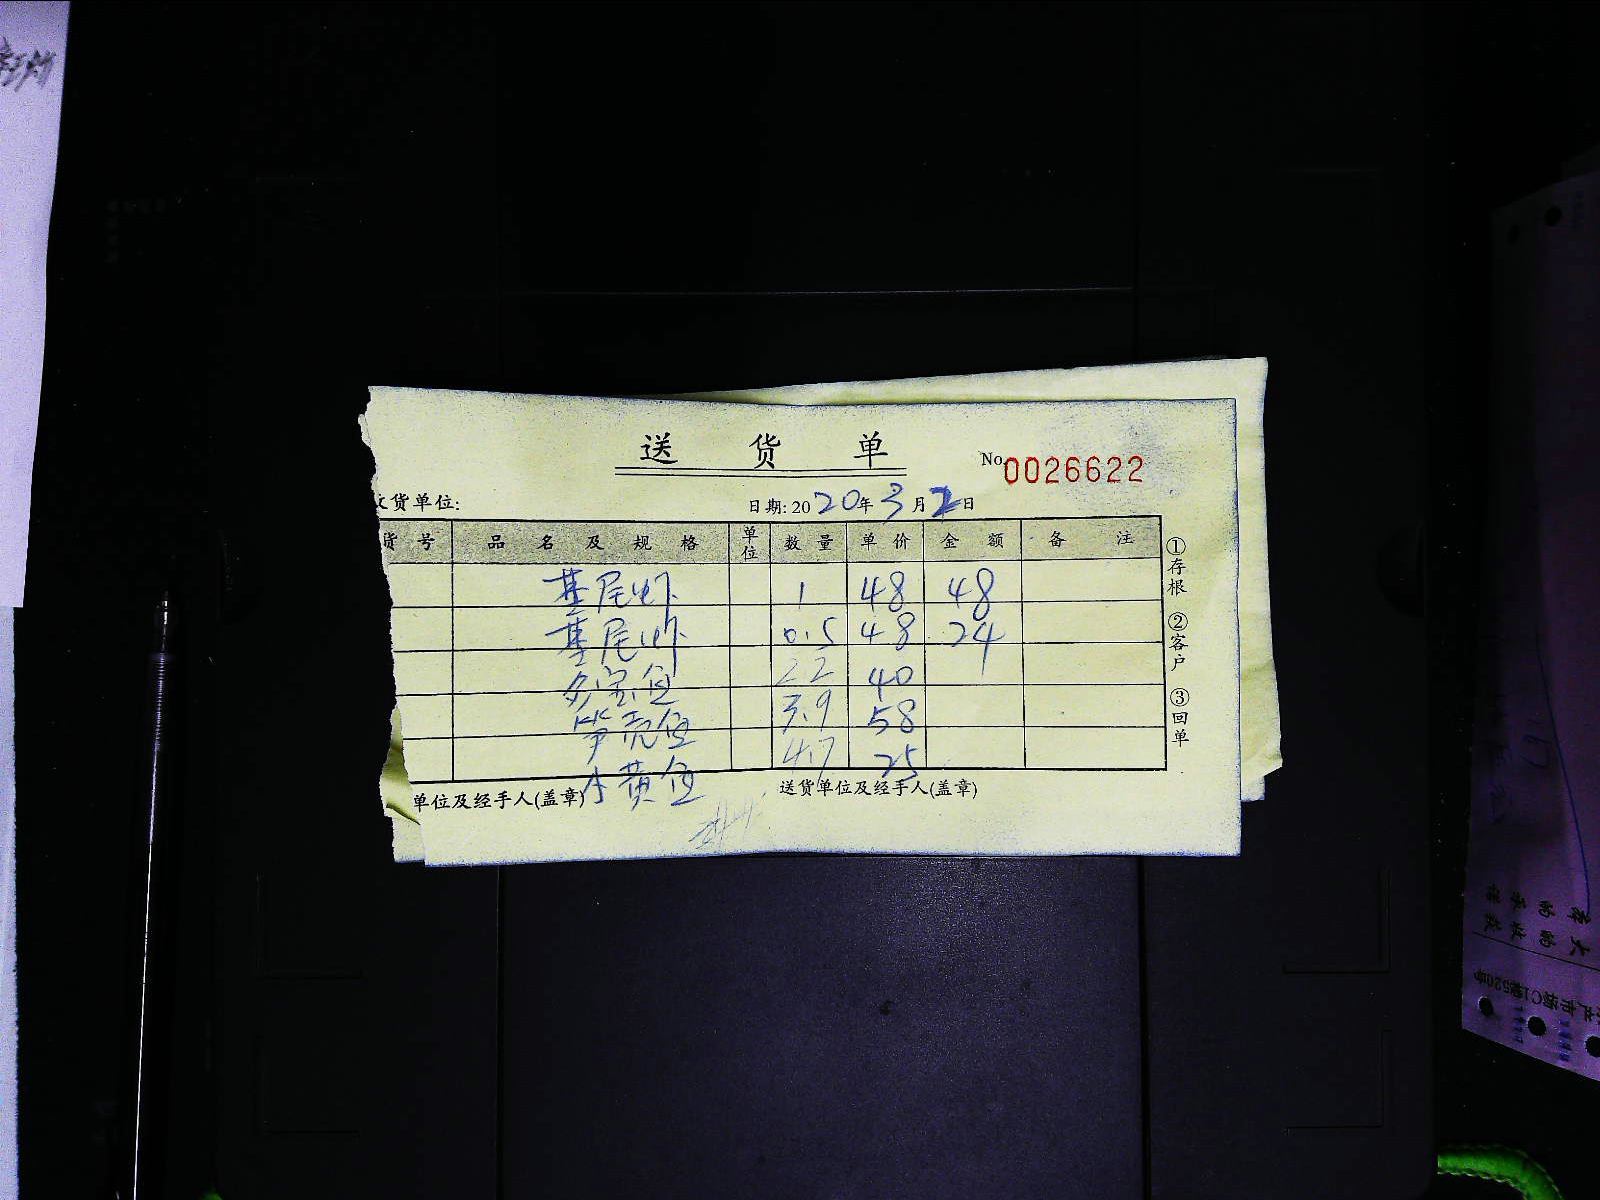 送 货 单
No. 0026622
收货单位:
日期: 2020年3月2日
货号 品名及规格 单位 数量 单价 金额 备注
基尾虾 1 48 48
基尾虾 0.5 48 24
多宝鱼 2.2 40
笋壳鱼 3.9 58
小黄鱼 4.7 25
单位及经手人(盖章)
送货单位及经手人(盖章)
①存根 ②客户 ③回单